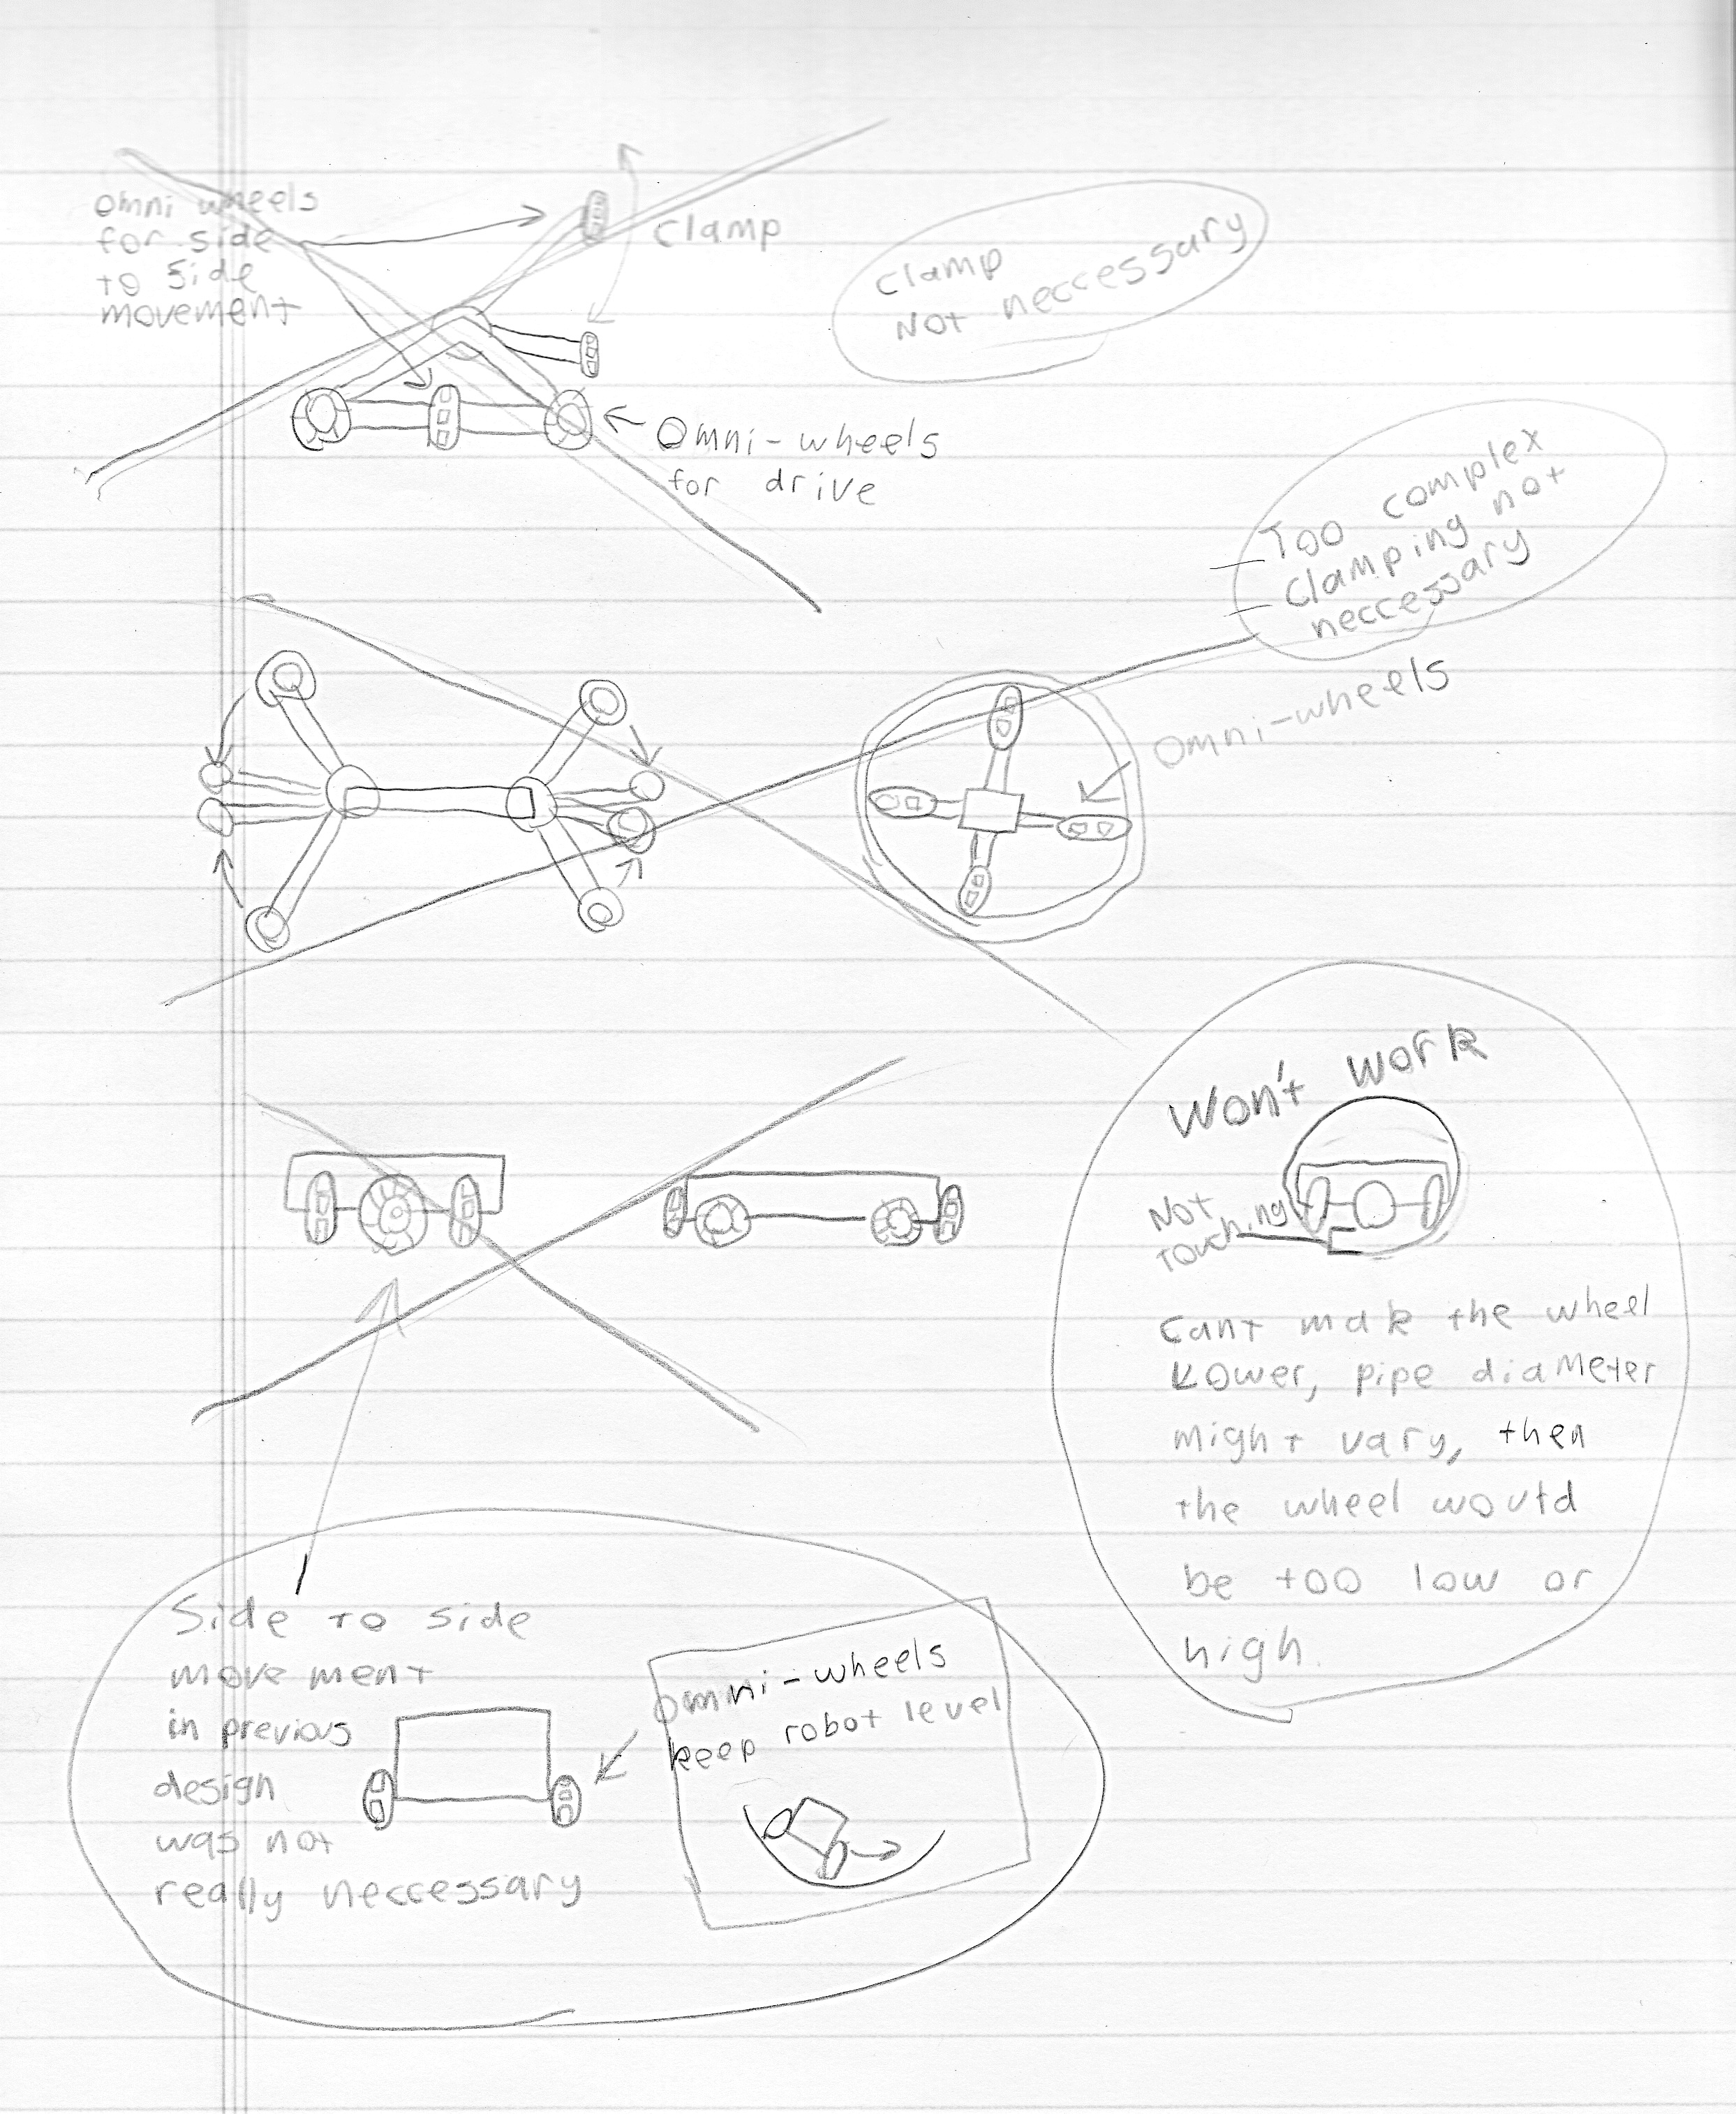 Omni wheels
for side
to side
movement
clamp
clamp
Not neccessary
Omni-wheels
for drive
Too complex
Clamping not
neccessary
Omni-wheels
Won't work
Not
Touching
Cant mak the wheel
Lower, pipe diameter
might vary, then
the wheel would
be too low or
high.
Side to side
movement
in previous
design
was not
really neccessary
omni-wheels
keep robot level